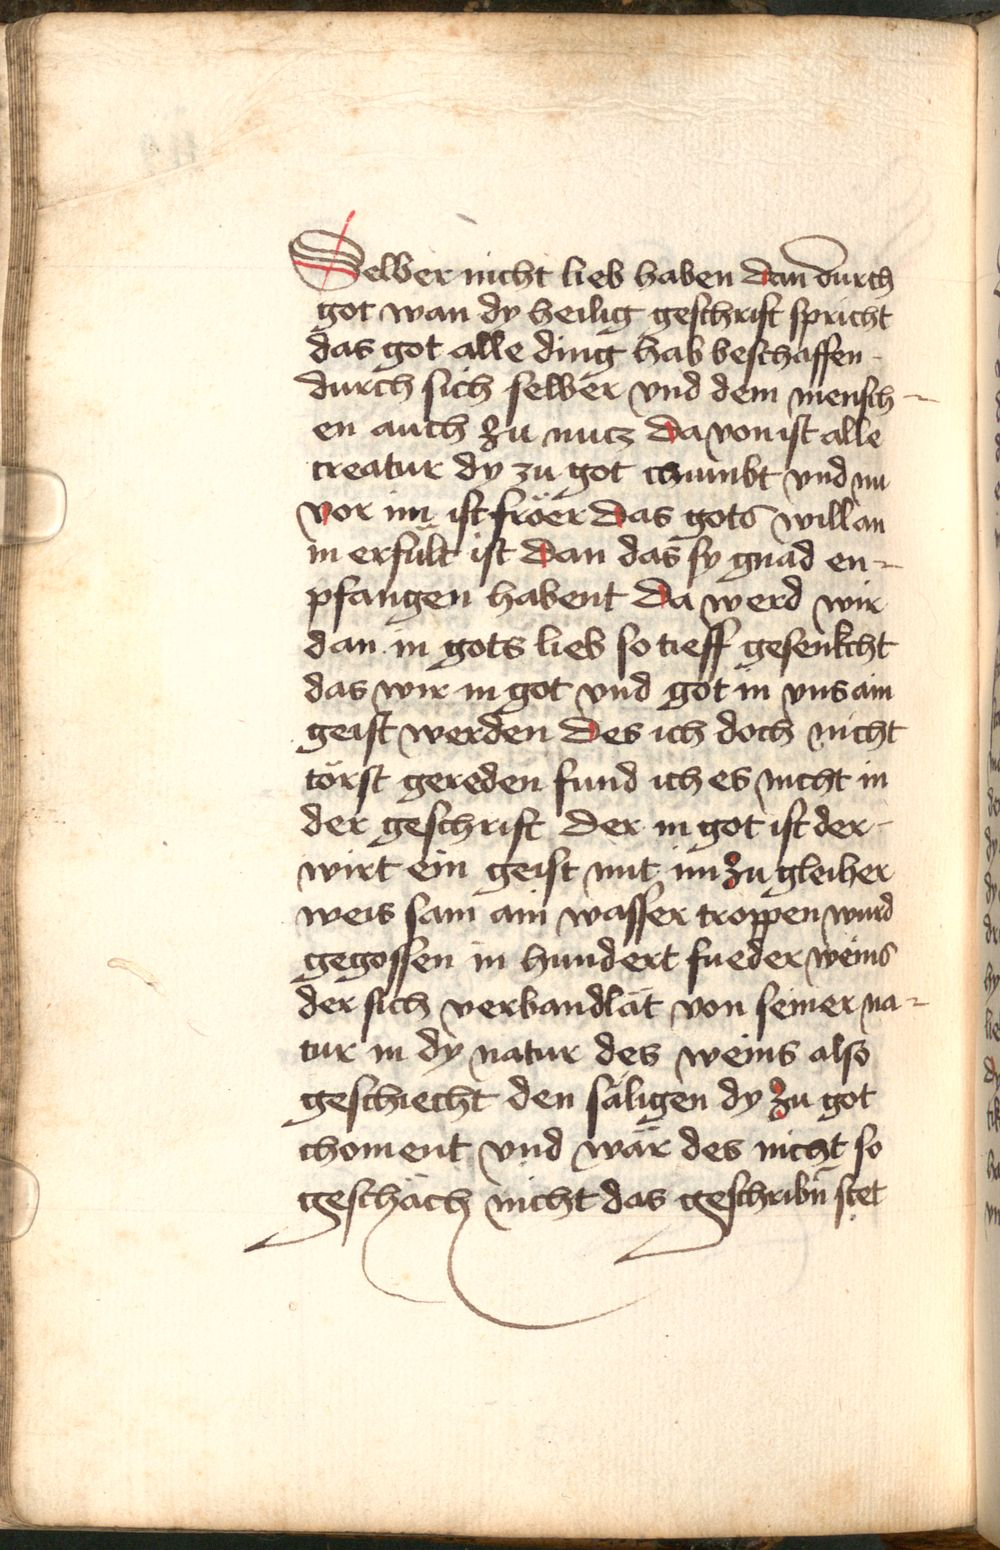 Selber nicht lieb haben dan durch
got wan dy heilig geschrift spricht
das got alle ding hab beschaffen -
durch sich selber vnd dem mensch -
en auch zu nucz Da von ist alle
creatur dy zu got chumbt vnd nu
vor im ist fröer Das gots will an
in erfült ist Dan das sy gnad en -
pfangen habent Da werd wir
dan in gots lieb so tieff gesenkcht
das wir in got vnd got in vns ain
geist werden Des ich doch nicht
törst gereden fund ich es nicht in
der geschrift Der in got ist der -
wirt ein geist mit im zu gleiher
weis sam ain wasser troppen wurd
gegossen in hundert fueder weins
der sich verbandlät von seiner na -
tur in dy natur des weins also
geschiecht den säligen dy zu got
choment vnd wär des nicht so
geschäch nicht das geschribn̄ stet